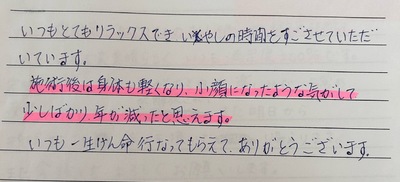 いつもとてもリラックスでき いやしの時間をすごさせていただ
いています。
施術後は身体も軽くなり、小顔になったような気がして
少しばかり年が減ったと思えます。
いつも一生けん命 行なってもらえて、ありがとうございます。